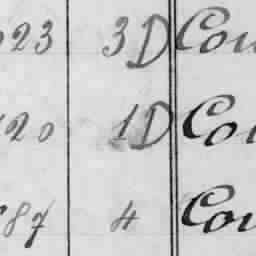 23 3D Cou
20 1D Cou
87 4 Cou